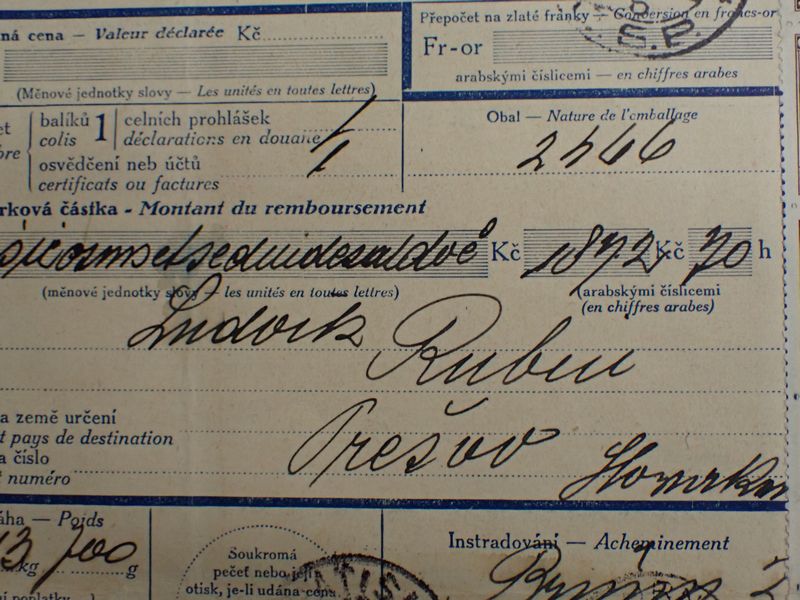 ná cena — Valeur déclarée Kč
(Měnové jednotky slovy — Les unités en toutes lettres)
Přepočet na zlaté fránky — Conversion en francs-or
Fr-or
arabskými číslicemi — en chiffres arabes
S.P.
balíků 1 celních prohlášek 1
colis déclarations en douane
osvědčení neb účtů 1
certificats ou factures
Obal — Nature de l'emballage
2466
rková částka - Montant du remboursement
Kč 1872 Kč 70 h
(měnové jednotky slovy — les unités en toutes lettres)
(arabskými číslicemi
(en chiffres arabes)
Ludvík Rubin
a země určení
t pays de destination
Prešov
a číslo
t numéro
Slovaken
áha — Poids
13 kg 700 g
Soukromá
pečeť nebo její
otisk, je-li udána cena
ATISL
Instradování — Acheminement